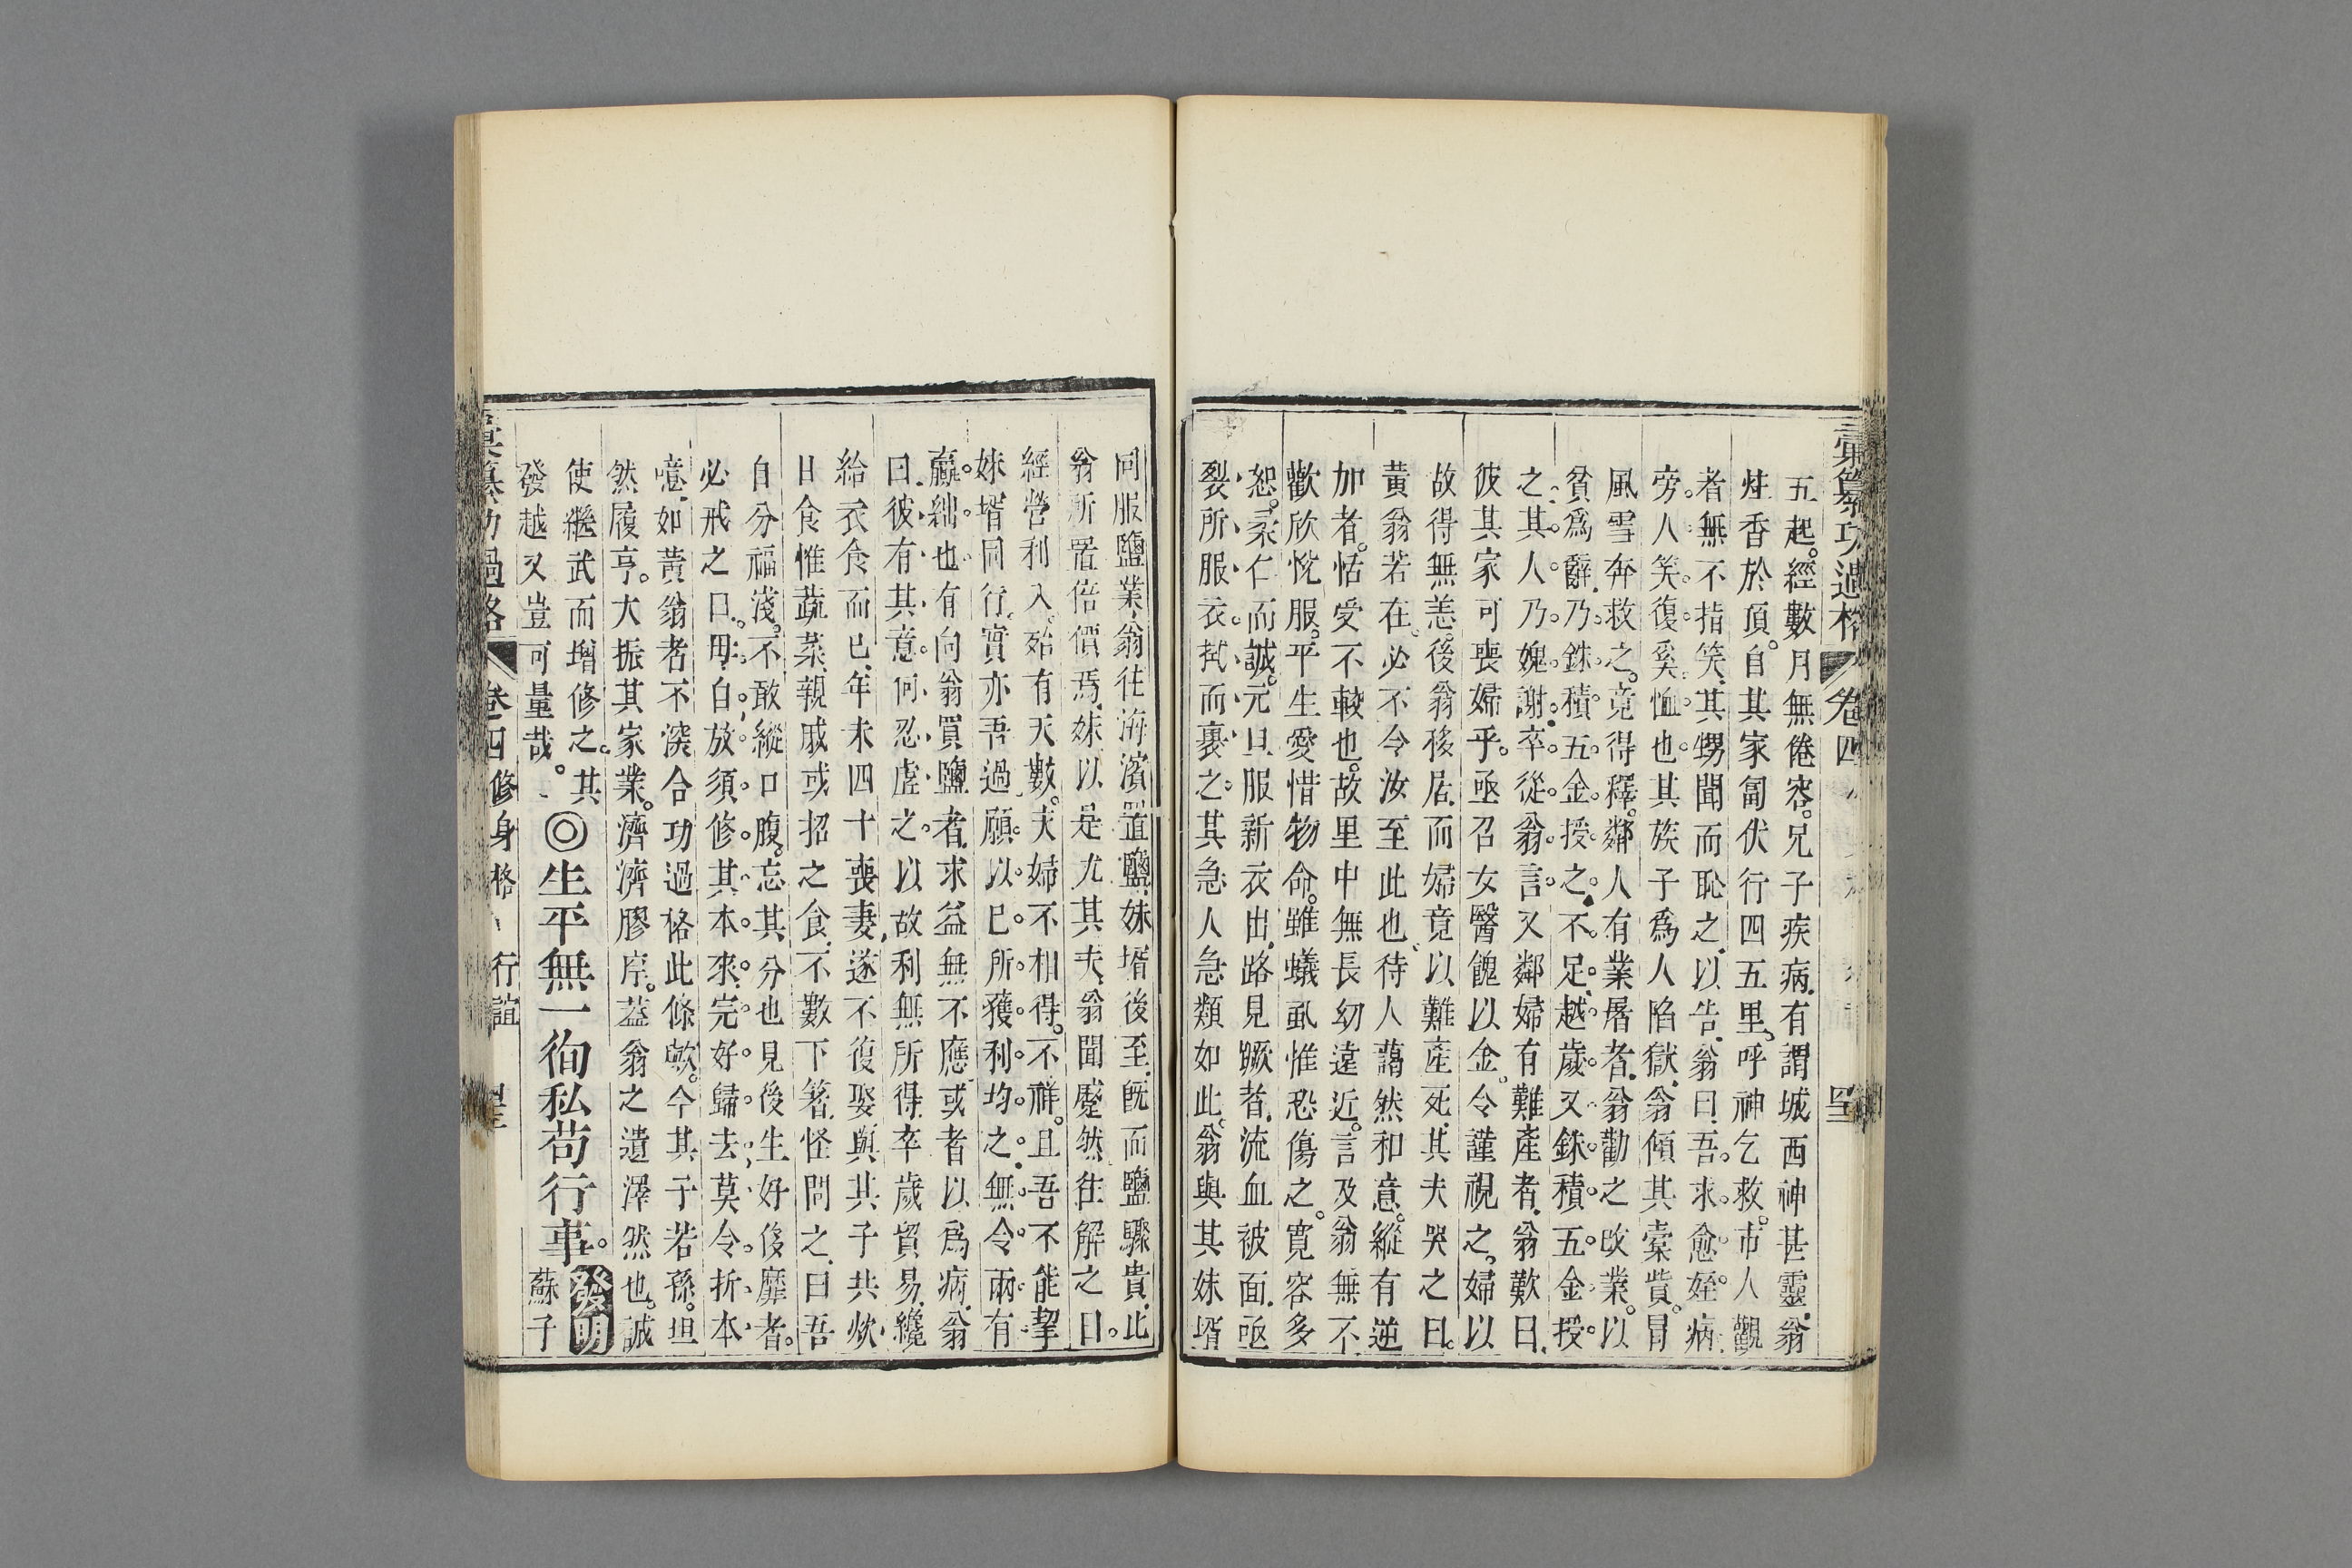 彙纂功過格
卷四
五起。經數月無倦容。兄子疾病、有謂城西神甚靈、翁
炷香於頂。自其家匐伏行四五里、呼神乞救。市人觀
者無不指笑、其甥聞而恥之、以告、翁曰、吾求愈姪病、
旁人笑、復奚恤也、其族子爲人陷獄、翁傾其橐貲。冒
風雪奔救之。竟得釋。鄰人有業屠者、翁勸之改業。以
貧爲辭、乃銖積五金授之、不足、越歲又銖積五金授
之、其人乃媿謝、卒從翁言、又鄰婦有難產者、翁歎曰、
彼其家可喪婦乎。亟召女醫餽以金。令謹視之。婦以
故得無恙。後翁移居、而婦竟以難產死、其夫哭之曰。
黃翁若在。必不令汝至此也、待人藹然和意。縱有逆
加者。恬受不較也。故里中無長幼遠近。言及翁無不
歡欣悅服。平生愛惜物命。雖蟻虱惟恐傷之。寬容多
恕。柔仁而誠。元旦服新衣出、路見蹶者、流血被面、亟
裂所服衣、拭而裹之、其急人急類如此、翁與其妹壻
同服鹽業、翁往海濱置鹽、妹壻後至、既而鹽驟貴、此
翁所置倍價焉、妹以是尤其夫、翁聞蹙然往解之曰。
經營利入、殆有天數。夫婦不相得。不祥。且吾不能挈
妹壻同行、實亦吾過、願以己所獲利均之、無令兩有
贏絀也、有向翁買鹽者、求益無不應、或者以爲病、翁
曰、彼有其意、何忍虛之、以故利無所得、卒歲貿易、纔
給衣食而已、年未四十喪妻、遂不復娶、與其子共炊、
日食惟蔬菜、親戚或招之食、不數下箸、怪問之、曰吾
自分福淺。不敢縱口腹。忘其分也、見後生好侈靡者。
必戒之曰。毋自放、須修其本來、完好歸去、莫令折本
噫、如黃翁者、不深合功過格此條歟。今其子若孫。坦
然履亨。大振其家業。濟濟膠庠。蓋翁之遺澤然也。誠
使繼武而增修之。其
發越又豈可量哉。
◎生平無一徇私苟行事。
發明
蘇子
彙纂功過格
卷四
修身格
行誼